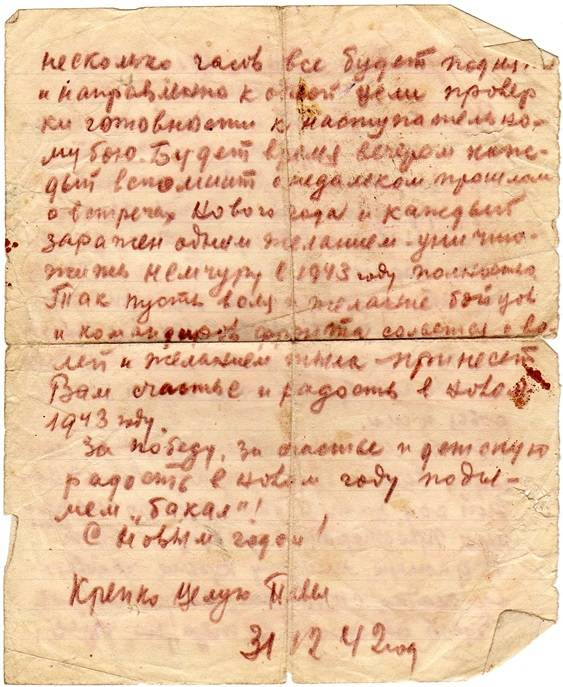 несколько часов все будет
и направлено к одной цели провер
ки готовности к наступательно-
му бою. Будет время вечером каж-
дый вспомнит о недалеком прошлом
о встречах Нового года и каждый
заражен одним желанием - уничто-
жить Немчуру в 1943 году полностью
Так пусть воля и желание бойцов
и командиров фронта солается с во-
лей и желанием тыла принесет
Вам счастье и радость в новом
1943 году.
За победу, за счастье и детскую
радость в новом году поды-
мем „бакал"!
С новым годом!
Крепко целую Павел
31 12 42 год